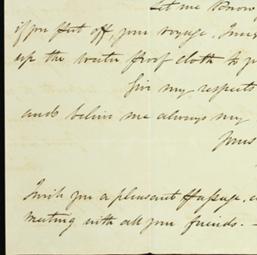 Let me know
if you put off your voyage. I must
up the water proof cloth to
Give my respects
and believe me always my
yours
I wish you a pleasant passage,
meeting with all your friends. -